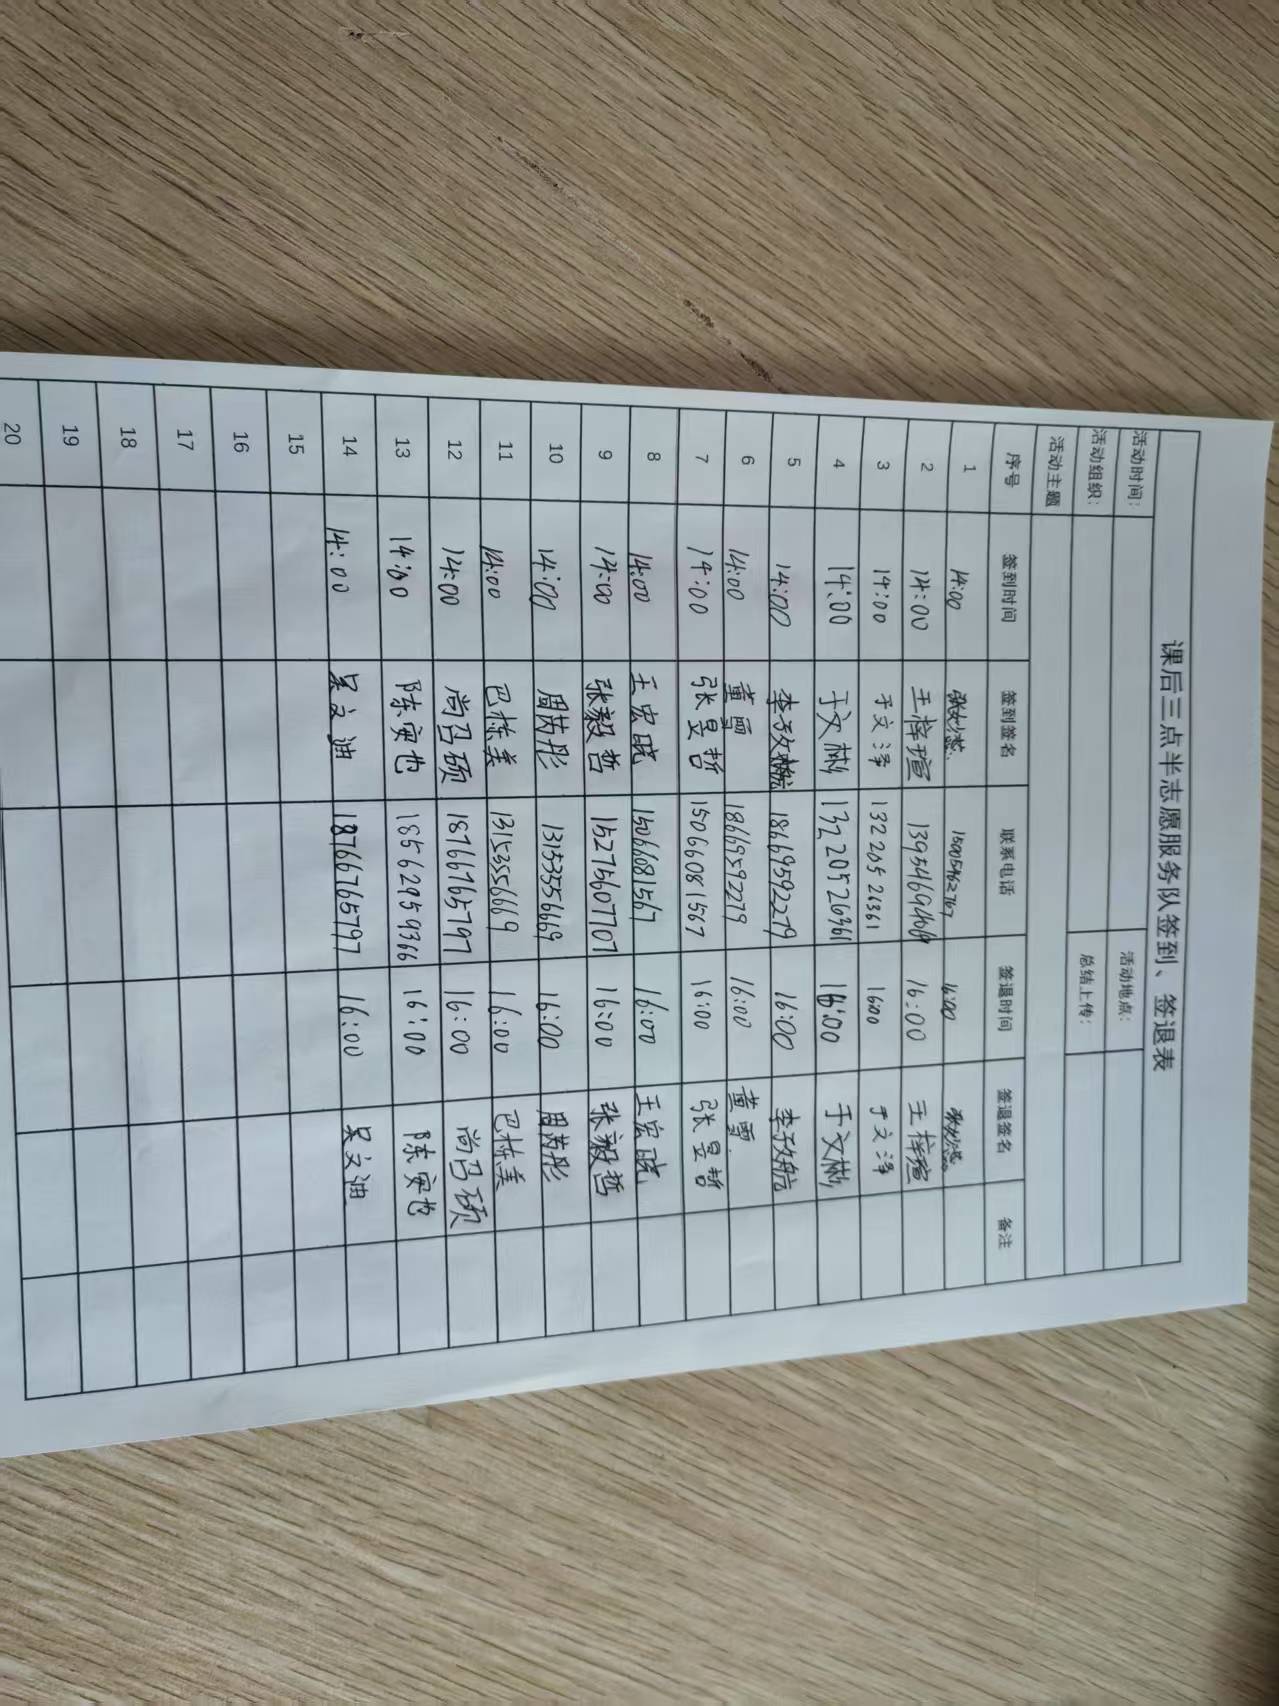 课后三点半志愿服务队签到、签退表
活动时间： 活动地点：
活动组织： 总结上传：
活动主题
序号 签到时间 签到签名 联系电话 签退时间 签退签名 备注
1 14:00 15005462767 16:00
2 14:00 王梓瑄 16:00 王梓瑄
3 14:00 于文泽 13220526361 16:00 于文泽
4 14:00 于文彬 13220526361 16:00 于文彬
5 14:00 李孜航 18669592279 16:00 李孜航
6 14:00 董雪 18669592279 16:00 董雪
7 14:00 张昱哲 15066081567 16:00 张昱哲
8 14:00 王宏晓 15066081567 16:00 王宏晓
9 14:00 张毅哲 15275607707 16:00 张毅哲
10 14:00 周芮彤 13153556669 16:00 周芮彤
11 14:00 巴栋美 13153556669 16:00 巴栋美
12 14:00 尚召硕 18766765797 16:00 尚召硕
13 14:00 陈寅也 18562959366 16:00 陈寅也
14 14:00 吴文迪 18766765797 16:00 吴文迪
15
16
17
18
19
20